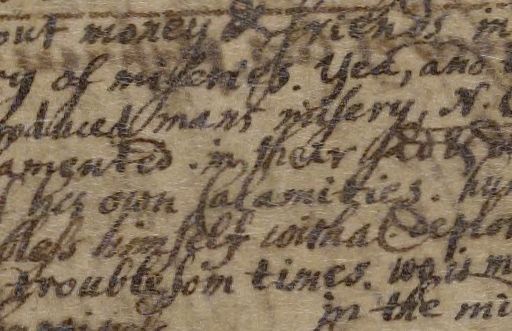 out money & friends in
ry of miseries. Yea, and
oduced mans misery, N.
amented in their
his own calamities.
bless himself with a
troublesom times. wo is m
in the mi